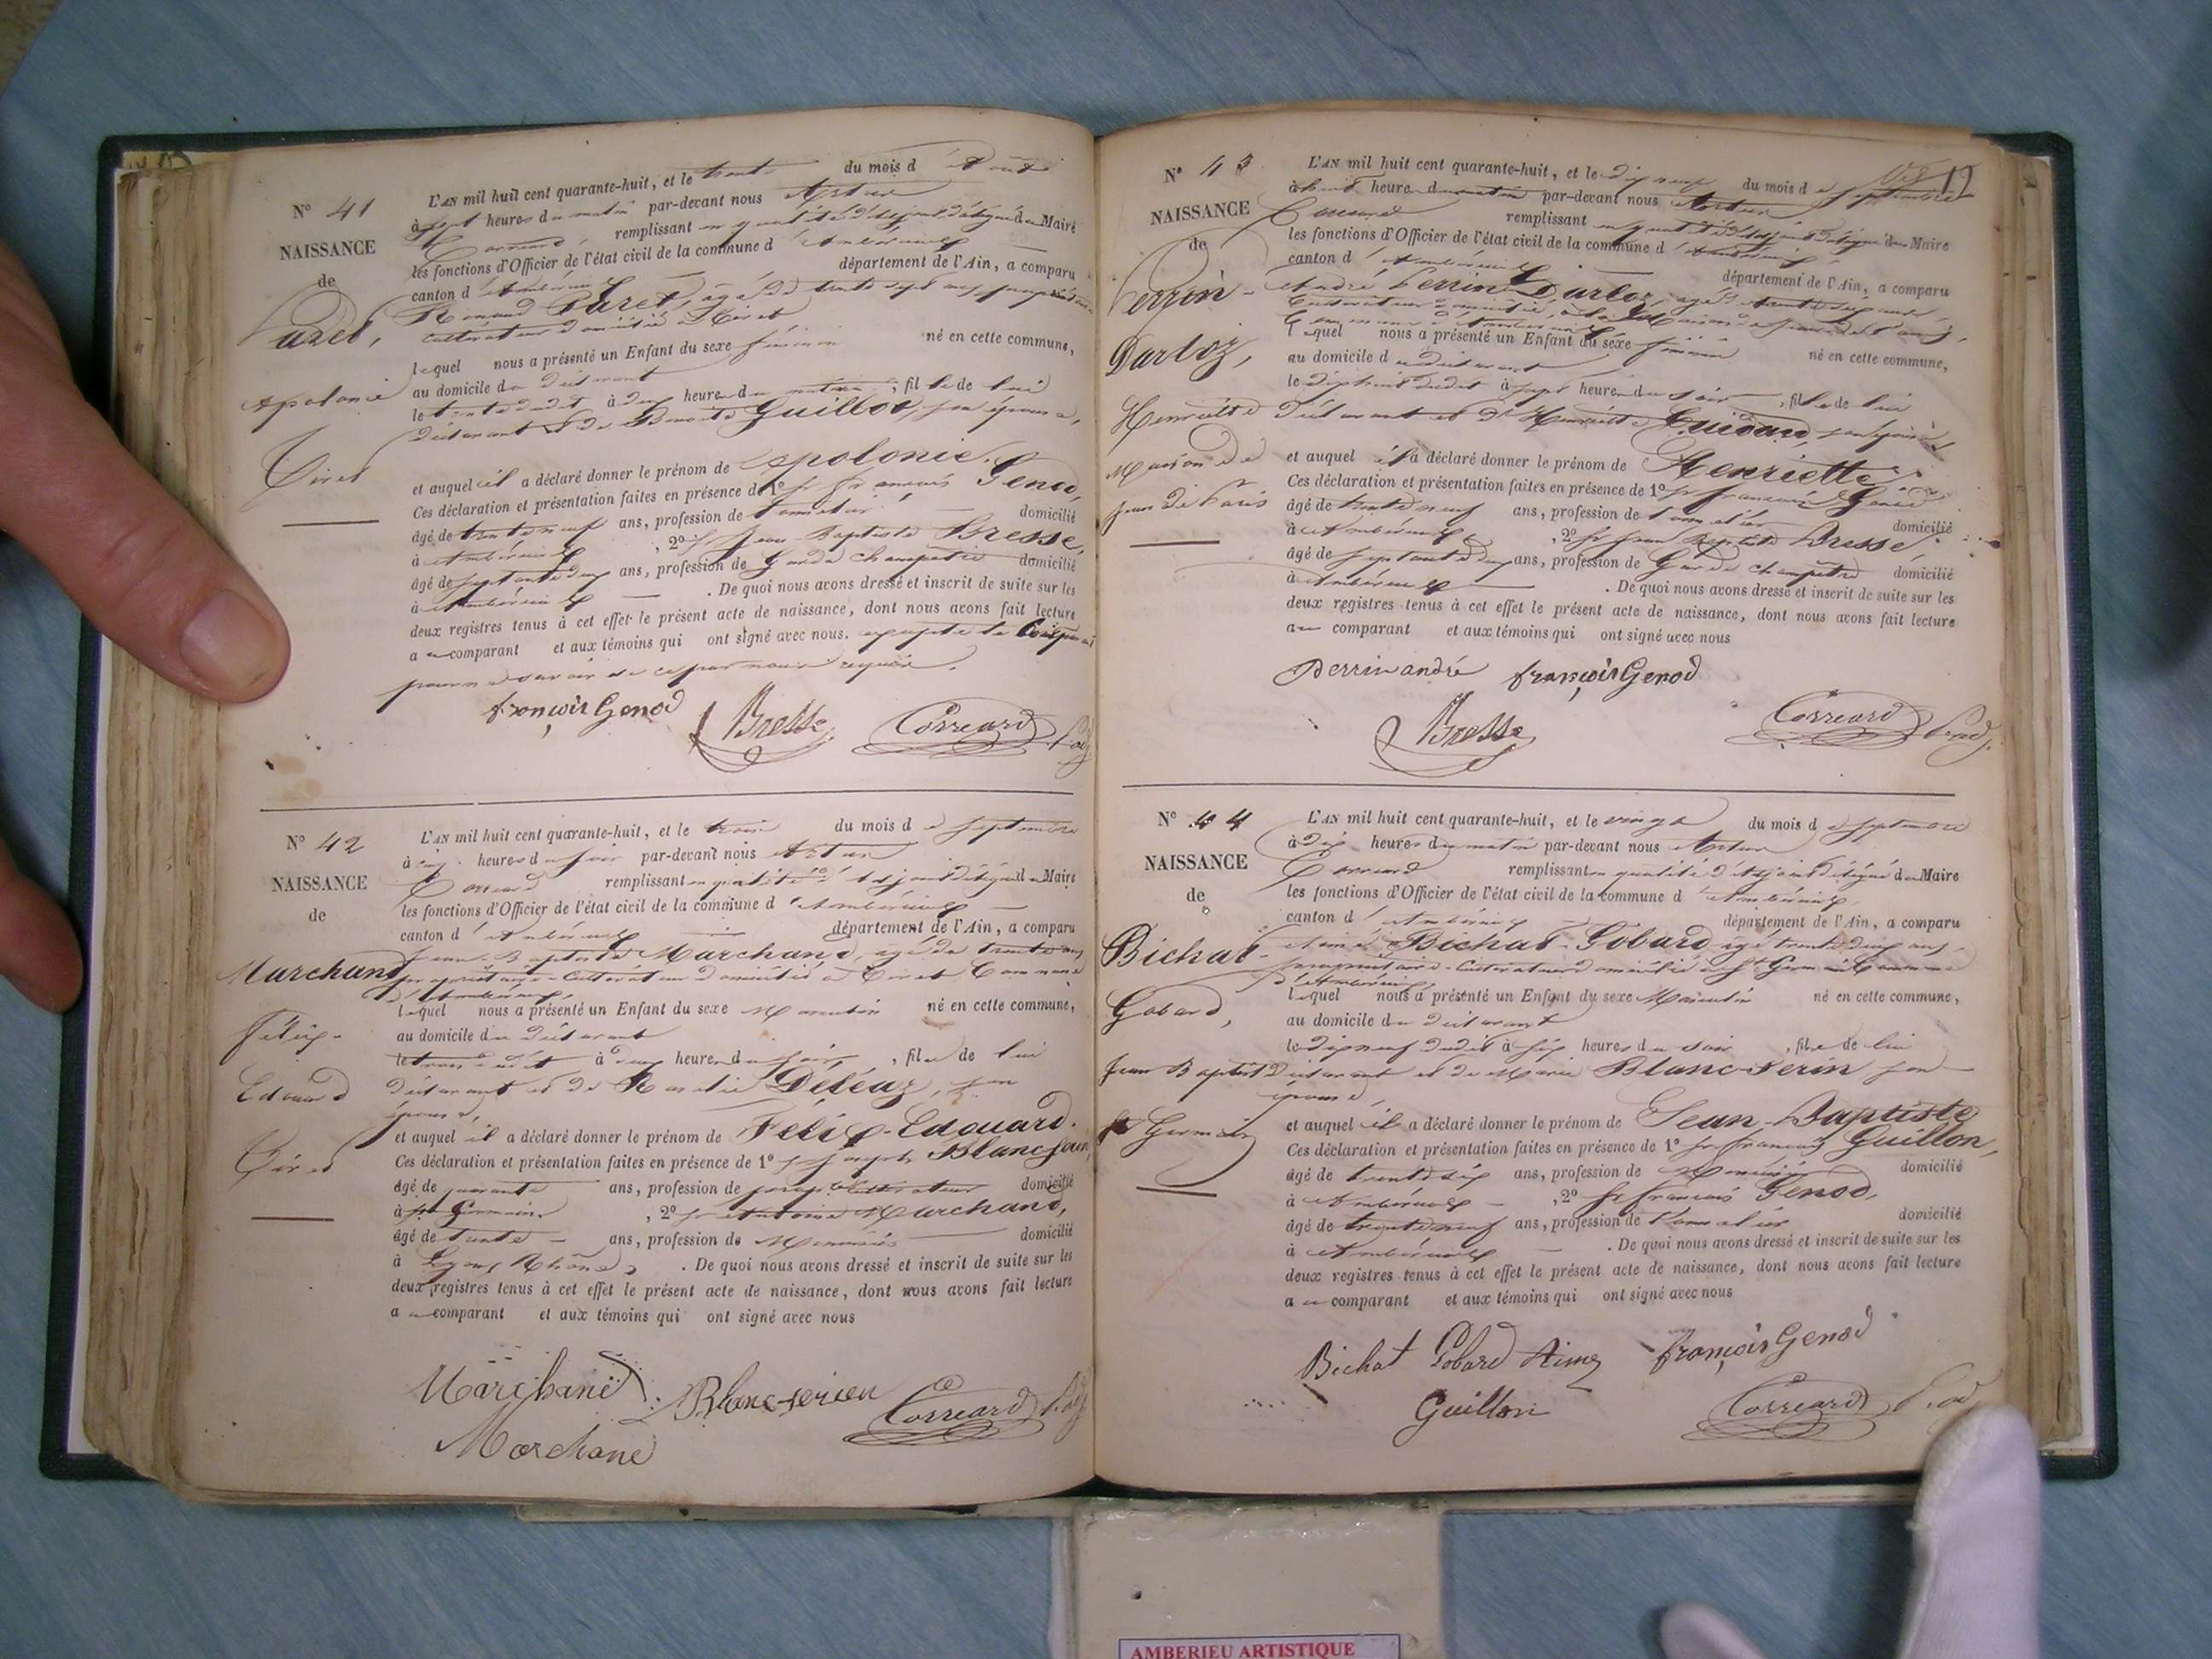 N° 41
NAISSANCE
de
Puret,
Apolonie
Tiret
L'AN mil huit cent quarante-huit, et le trente du mois d'Août
à sept heures du matin par-devant nous Artur
Correard remplissant en qualité d'adjoint délégué du Maire
les fonctions d'Officier de l'état civil de la commune d'Ambérieux
canton d'Ambérieux département de l'Ain, a comparu
Puret, âgé de trente sept ans, propriétaire
cultivateur domicilié à Tiret
lequel nous a présenté un Enfant du sexe féminin né en cette commune,
au domicile du déclarant
le trente dudit à deux heures du matin, fille de lui
déclarant & de Benoite Guillot, son épouse,
et auquel il a déclaré donner le prénom de Apolonie.
Ces déclaration et présentation faites en présence de 1° sr françois Genod,
âgé de trente neuf ans, profession de tonnelier domicilié
à Ambérieux, 2° sr Jean Baptiste Bresse,
âgé de septante deux ans, profession de Garde champêtre domicilié
à Ambérieux. De quoi nous avons dressé et inscrit de suite sur les
deux registres tenus à cet effet le présent acte de naissance, dont nous avons fait lecture
au comparant et aux témoins qui ont signé avec nous.
pour ne savoir de ce par nous requis.
françois Genod
Bresse
Correard
N° 42
NAISSANCE
de
Marchand
Félix-
Edouard
Tiret
L'AN mil huit cent quarante-huit, et le trois du mois de septembre
à heures du soir par-devant nous Artur
Correard remplissant en qualité d'adjoint délégué du Maire
les fonctions d'Officier de l'état civil de la commune d'Ambérieux
canton d'Ambérieux département de l'Ain, a comparu
Jean-Baptiste Marchand, âgé de trente ans
propriétaire-cultivateur domicilié à Tiret Commune
d'Ambérieux,
lequel nous a présenté un Enfant du sexe Masculin né en cette commune,
au domicile du déclarant
le trois dudit à deux heures du soir, fils de lui
déclarant et de Roselie Déléaz, son
épouse,
et auquel il a déclaré donner le prénom de Félix-Edouard.
Ces déclaration et présentation faites en présence de 1° sr Joseph Blanc Jerin,
âgé de quarante ans, profession de propre cultivateur domicilié
à St Germain, 2° sr Antoine Marchand,
âgé de trente ans, profession de Menuisier domicilié
à Lyon, Rhône. De quoi nous avons dressé et inscrit de suite sur les
deux registres tenus à cet effet le présent acte de naissance, dont nous avons fait lecture
au comparant et aux témoins qui ont signé avec nous
Marchand
Blanc-Jerien
Correard
Marchand
12
N° 43
NAISSANCE
de
Perrin-
Darloz,
Henriette
Maison de
Jean de Paris
L'AN mil huit cent quarante-huit, et le dix neuf du mois de septembre
à huit heures du matin par-devant nous Artur
Correard remplissant en qualité d'adjoint délégué du Maire
les fonctions d'Officier de l'état civil de la commune d'Ambérieux
canton d'Ambérieux département de l'Ain, a comparu
André Perrin Darloz, âgé de trente six ans,
Cultivateur domicilié, à la Maison de Jean de Paris,
Commune d'Ambérieux
lequel nous a présenté un Enfant du sexe féminin né en cette commune,
au domicile du déclarant
le dix huit dudit à sept heures du soir, fille de lui
déclarant et de Henriette Guidard, son épouse,
et auquel il a déclaré donner le prénom de Henriette.
Ces déclaration et présentation faites en présence de 1° sr françois Genod
âgé de trente neuf ans, profession de tonnelier domicilié
à Ambérieux, 2° sr Jean Baptiste Bresse,
âgé de septante deux ans, profession de Garde champêtre domicilié
à Ambérieux. De quoi nous avons dressé et inscrit de suite sur les
deux registres tenus à cet effet le présent acte de naissance, dont nous avons fait lecture
au comparant et aux témoins qui ont signé avec nous
Perrin andré
françois Genod
Bresse
Correard
N° 44
NAISSANCE
de
Bichat-
Gobard,
Jean Baptiste
St Germain
L'AN mil huit cent quarante-huit, et le vingt du mois de septembre
à dix heures du matin par-devant nous Artur
Correard remplissant en qualité d'Adjoint délégué du Maire
les fonctions d'Officier de l'état civil de la commune d'Ambérieux
canton d'Ambérieux département de l'Ain, a comparu
Aimé Bichat-Gobard âgé trente deux ans,
propriétaire-Cultivateur domicilié à St Germain Commune
d'Ambérieux,
lequel nous a présenté un Enfant du sexe Masculin né en cette commune,
au domicile du déclarant
le dix neuf dudit à six heures du soir, fils de lui
déclarant et de Marie Blanc-Jerin son
épouse,
et auquel il a déclaré donner le prénom de Jean-Baptiste
Ces déclaration et présentation faites en présence de 1° sr françois Guillon,
âgé de trente six ans, profession de Menuisier domicilié
à Ambérieux, 2° sr françois Genod,
âgé de trente neuf ans, profession de Tonnelier domicilié
à Ambérieux. De quoi nous avons dressé et inscrit de suite sur les
deux registres tenus à cet effet le présent acte de naissance, dont nous avons fait lecture
au comparant et aux témoins qui ont signé avec nous
Bichat Gobard Aimé
françois Genod
Guillon
Correard
AMBERIEU ARTISTIQUE